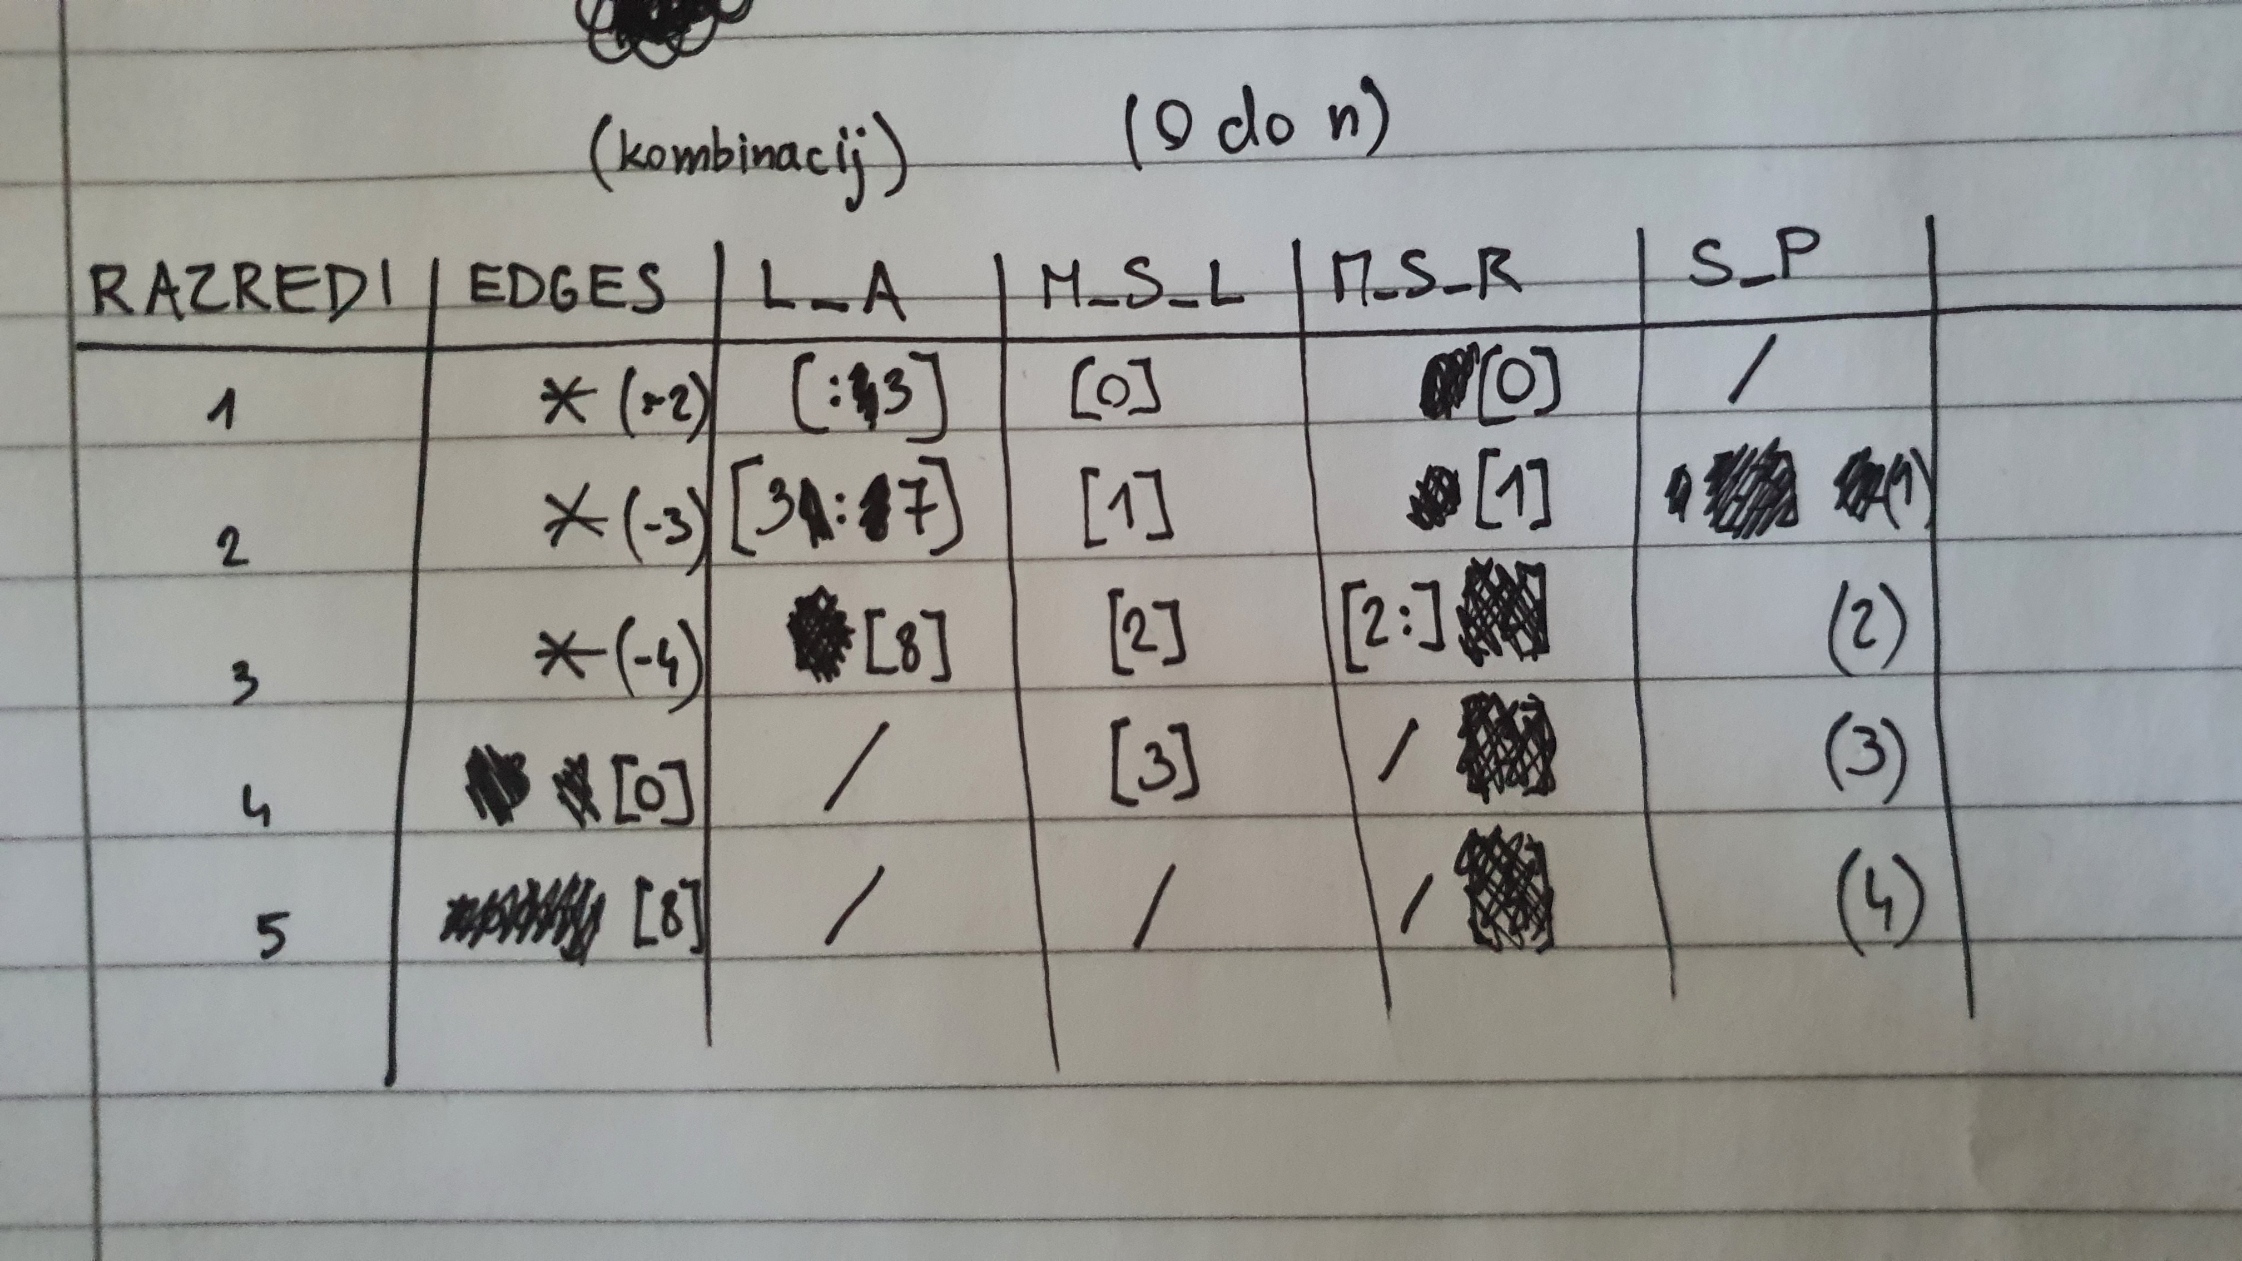 (kombinacij) (0 do n)
RAZREDI EDGES L_A M_S_L M_S_R S_P
1 * (-2) [:3] [0] [0] /
2 * (-3) [3:7] [1] [1] (1)
3 * (-4) [8] [2] [2:] (2)
4 [0] / [3] / (3)
5 [8] / / / (4)